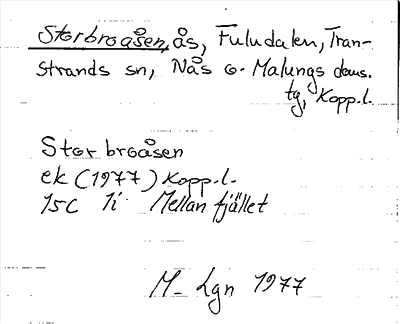 Storbroåsen, ås, Fuludalen, Tran-
strands sn, Nås o. Malungs doms.
tg, Kopp.l.
Storbroåsen
ek (1977) Kopp.l.
15C 1i Mellanfjället
M- Lgn 1977